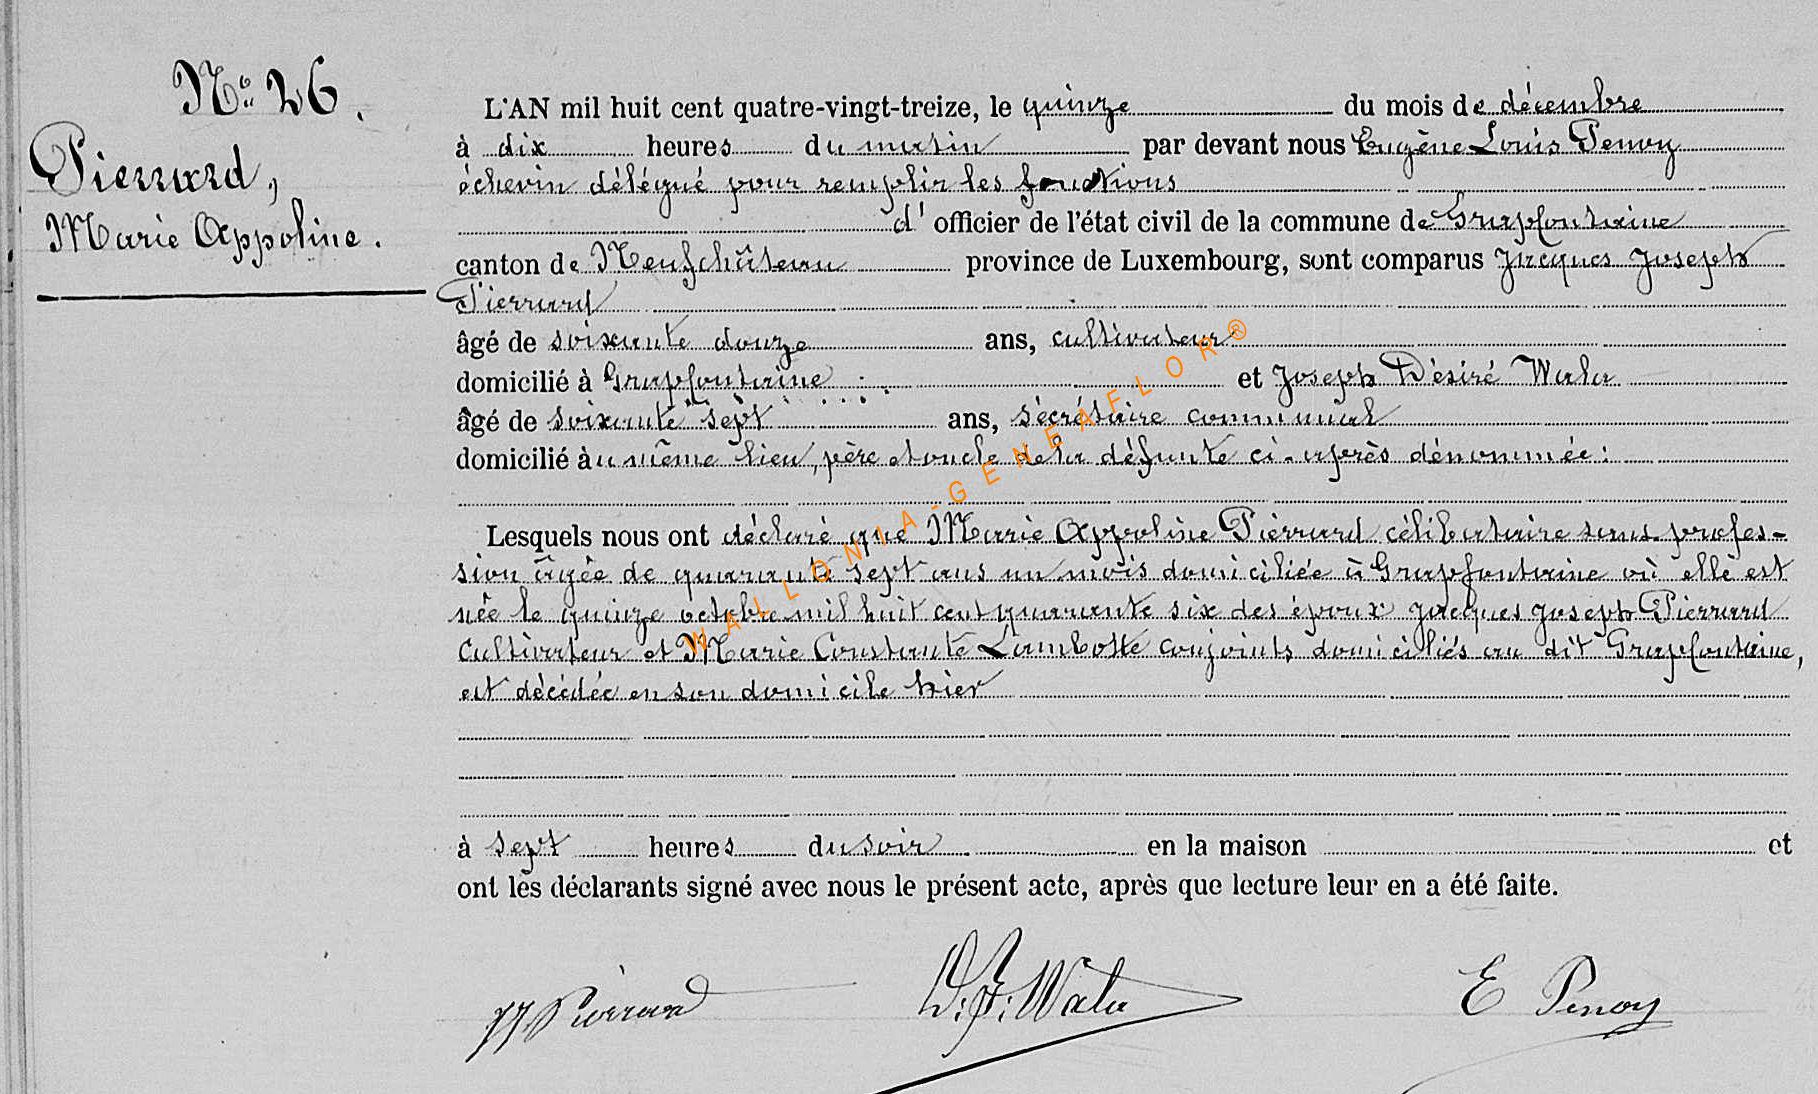 N° 26.
Pierrard,
Marie Appoline.
L'AN mil huit cent quatre-vingt-treize, le quinze du mois de décembre
à dix heures du matin par devant nous Eugène Louis Penoy
échevin délégué pour remplir les fonctions
d'officier de l'état civil de la commune de Grapfontaine
canton de Neufchâteau province de Luxembourg, sont comparus Jacques Joseph
Pierrard
âgé de soixante douze ans, cultivateur
domicilié à Grapfontaine et Joseph Désiré Wala
âgé de soixante sept ans, sécrétaire communal
domicilié au même lieu, père et oncle de la défunte ci-après dénommée :
Lesquels nous ont déclaré que Marie Appoline Pierrard célibataire sans profes-
sion âgée de quarante sept ans un mois domiciliée à Grapfontaine où elle est
née le quinze octobre mil huit cent quarante six des époux Jacques Joseph Pierrard
cultivateur et Marie Constante Lambotte conjoints domiciliés au dit Grapfontaine,
est décédée en son domicile hier
à sept heures du soir en la maison et
ont les déclarants signé avec nous le présent acte, après que lecture leur en a été faite.
JJ Pierrard D. J. Wala E Penoy
WALLONIA-GENEAFLOR®